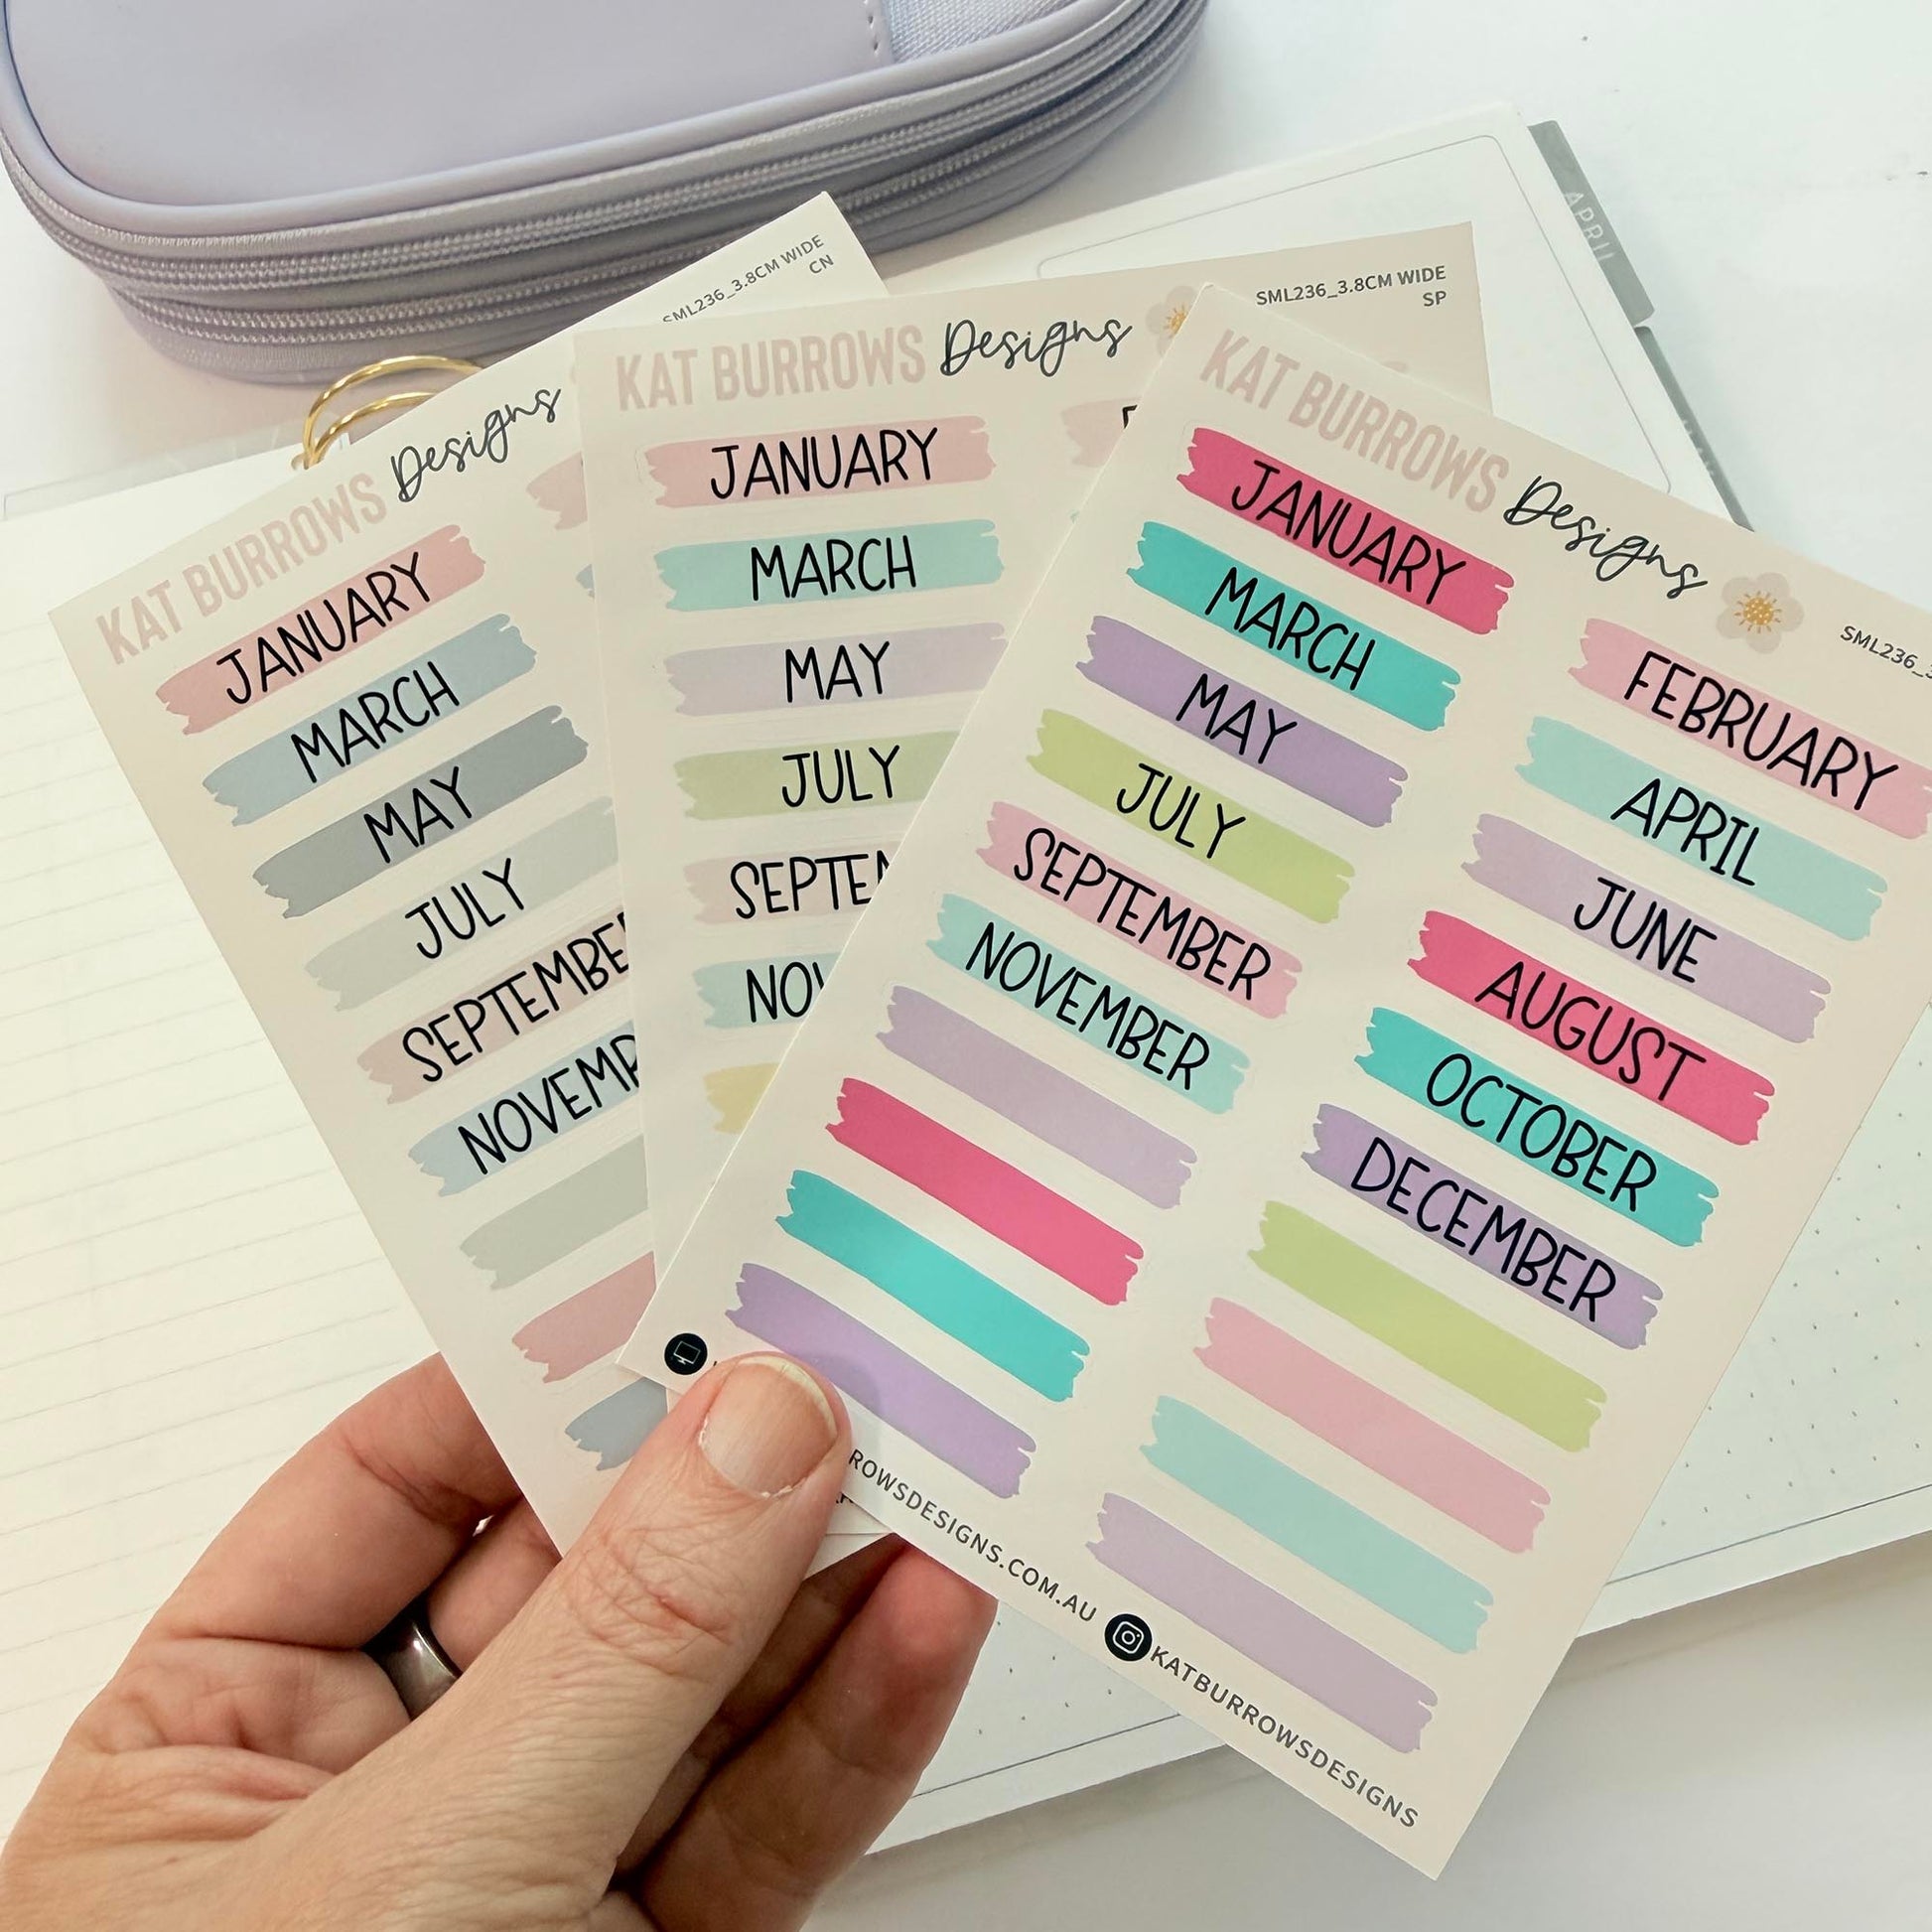 APRIL
SML236_3.8CM WIDE
CN
KAT BURROWS Designs
JANUARY
MARCH
MAY
JULY
SEPTEMBE
NOVEMB
SML236_3.8CM WIDE
SP
KAT BURROWS Designs
JANUARY
MARCH
MAY
JULY
SEPTE
NOV
KAT BURROWS Designs
SML236_
JANUARY
FEBRUARY
MARCH
APRIL
MAY
JUNE
JULY
AUGUST
SEPTEMBER
OCTOBER
NOVEMBER
DECEMBER
ROWSDESIGNS.COM.AU KATBURROWSDESIGNS